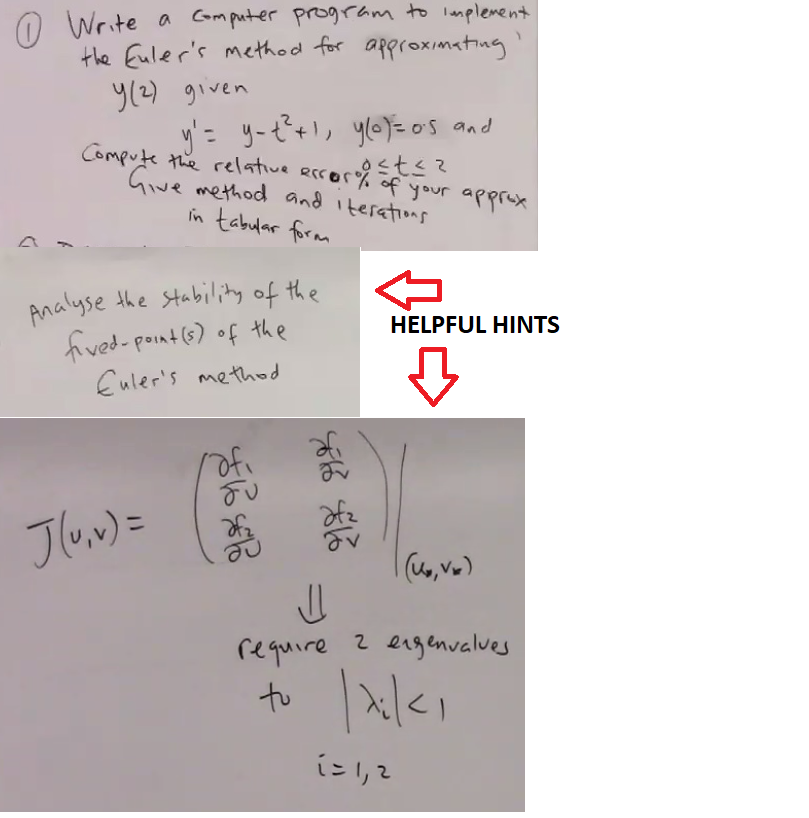 ① Write a computer program to implement
the Euler's method for approximating
y(2) given
y' = y-t²+1, y(0)=0.5 and
0 ≤ t ≤ 2
Compute the relative error% of your approx
Give method and iterations
in tabular form
Analyse the stability of the
fixed-point(s) of the
Euler's method
HELPFUL HINTS
J(u,v) = ( ∂f₁/∂u ∂f₁/∂v
∂f₂/∂u ∂f₂/∂v ) |(u*,v*)
⇓
require 2 eigenvalues
to |λᵢ| < 1
i = 1, 2